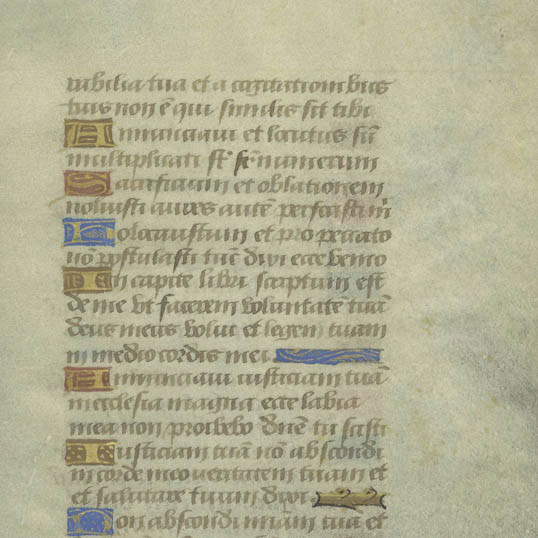 rabilia tua et a cogitationibus
tuis non ē qui similis sit tibi
Annunciavi et locutus sū
multiplicati st̄ sr̄ numerum
Sacrificium et oblationem
noluisti aures autē perfecisti m̄
Holocaustum et pro peccato
nō postulasti tūc dixi ecce venio
In capite libri scriptum est
de me vt facerem voluntatē tuā
deus meus volui et legem tuam
in medio cordis mei
Annunciaui iusticiam tuā
in ecclesia magna ecce labia
mea non prohibebo dn̄e tu scisti
Iusticiam tuā nō abscondi
in corde meo veritatem tuam et
et salutare tuum dixi
Non abscondi m̄iam tuā et